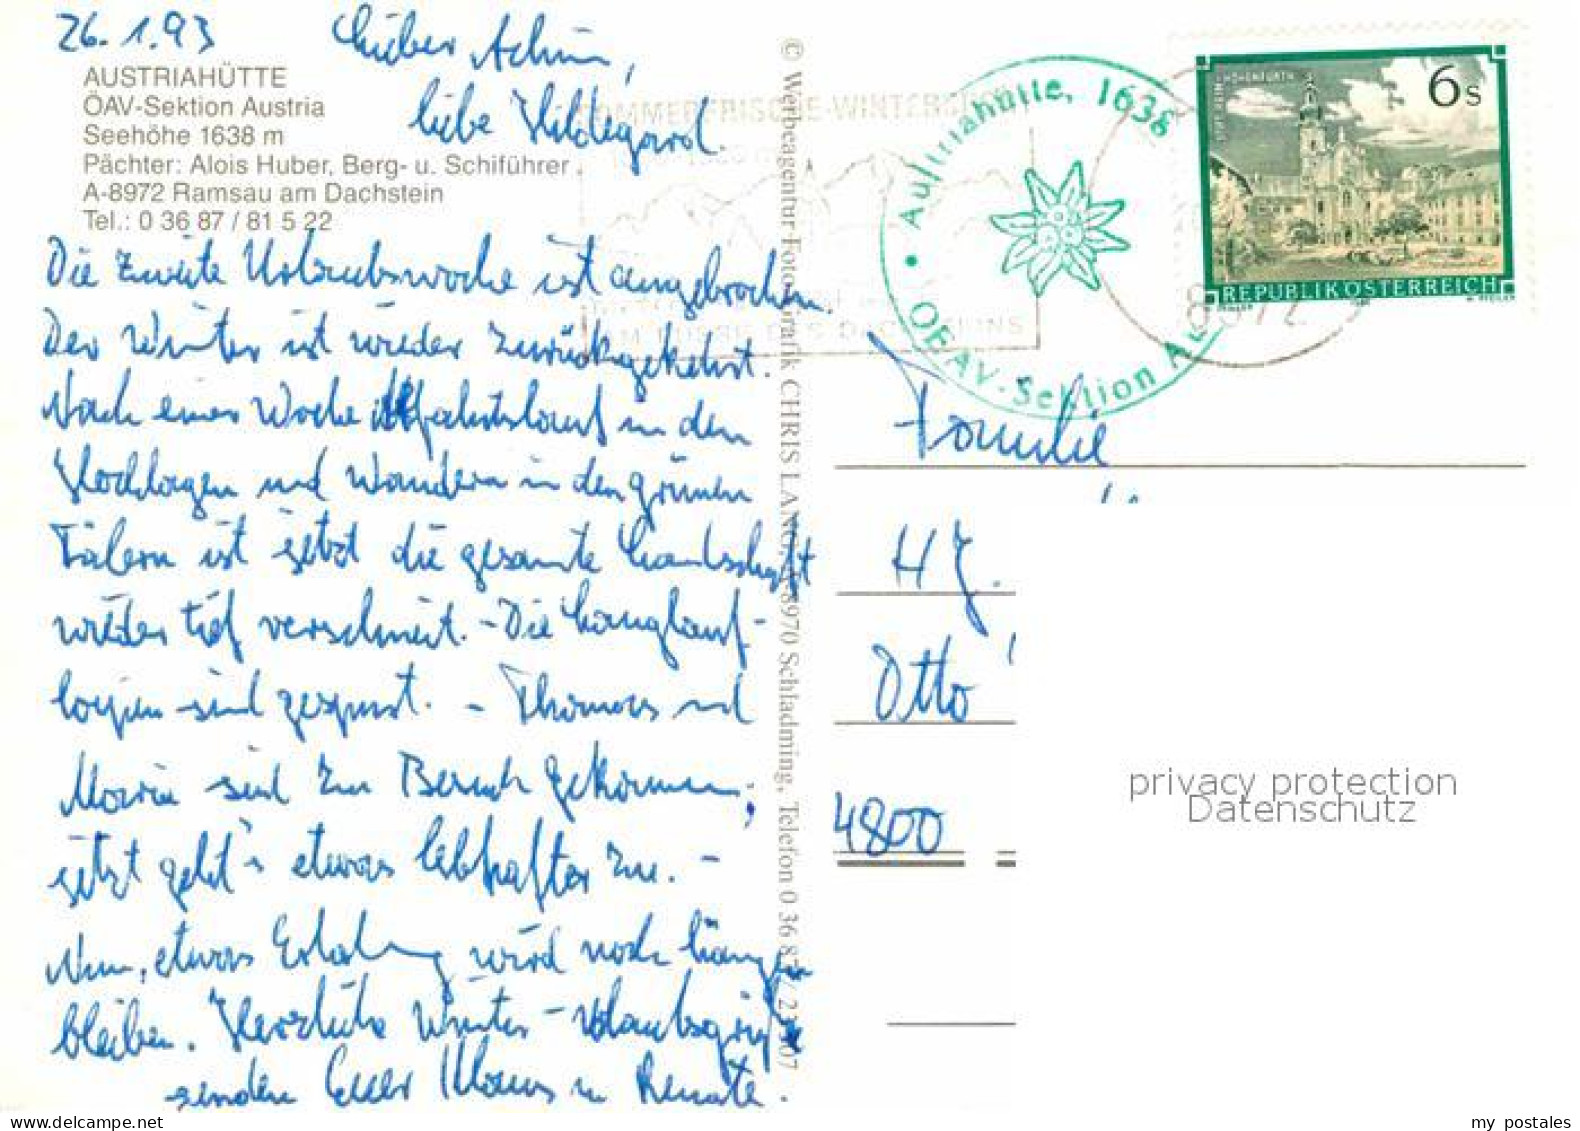 26.1.93
Lieber Achim,
liebe Hildegard.
AUSTRIAHÜTTE
ÖAV-Sektion Austria
Seehöhe 1638 m
Pächter: Alois Huber, Berg- u. Schiführer
A-8972 Ramsau am Dachstein
Tel.: 0 36 87 / 81 5 22
Die zweite Urlaubswoche ist angebrochen.
Der Winter ist wieder zurückgekehrt.
Nach einer Woche Abfahrtslauf in den
Hochlagen und Wandern in den grünen
Tälern ist jetzt die gesamte Landschaft
wieder tief verschneit. - Die Langlauf-
loipen sind gespurt. - Thomas und
Maria sind zu Besuch gekommen;
jetzt geht's etwas lebhafter zu. -
Nun, etwas Erholung wird noch hängen
bleiben. Herzliche Winter-Urlaubsgrüße
senden Euer Klaus u Renate.
© Werbeagentur Foto-Grafik CHRIS LANG, A-8970 Schladming, Telefon 0 36 87 /
SOMMERFRISCHE-WINTERSPORT
AM FUSSE DES DACHSTEINS
Austriahütte, 1638
OEAV-Sektion Au
8972
STIFT REIN-HOHENFURTH
6s
REPUBLIK ÖSTERREICH
Familie
H J.
Otto
4800
privacy protection
Datenschutz
my postales